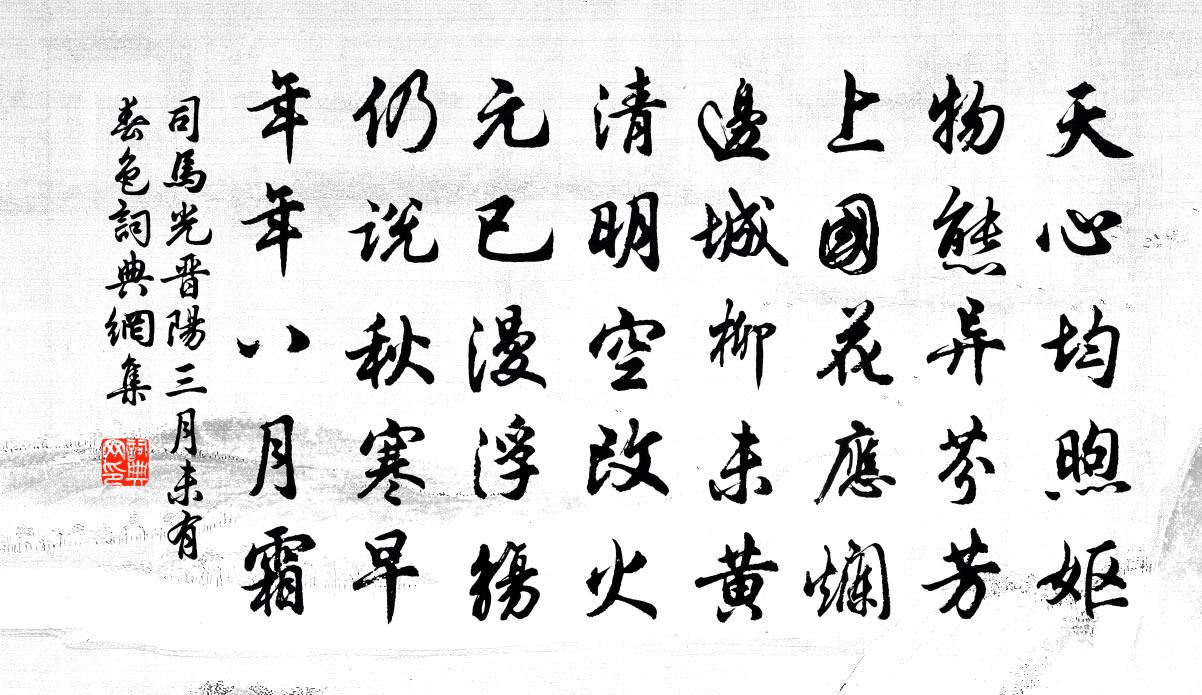 天心均煦妪
物態异芬芳
上國花應爛
邊城柳未黃
清明空改火
元巳漫浮觴
仍説秋寒早
年年八月霜
司馬光晋陽三月未有
春色詞典網集
詞典
网印